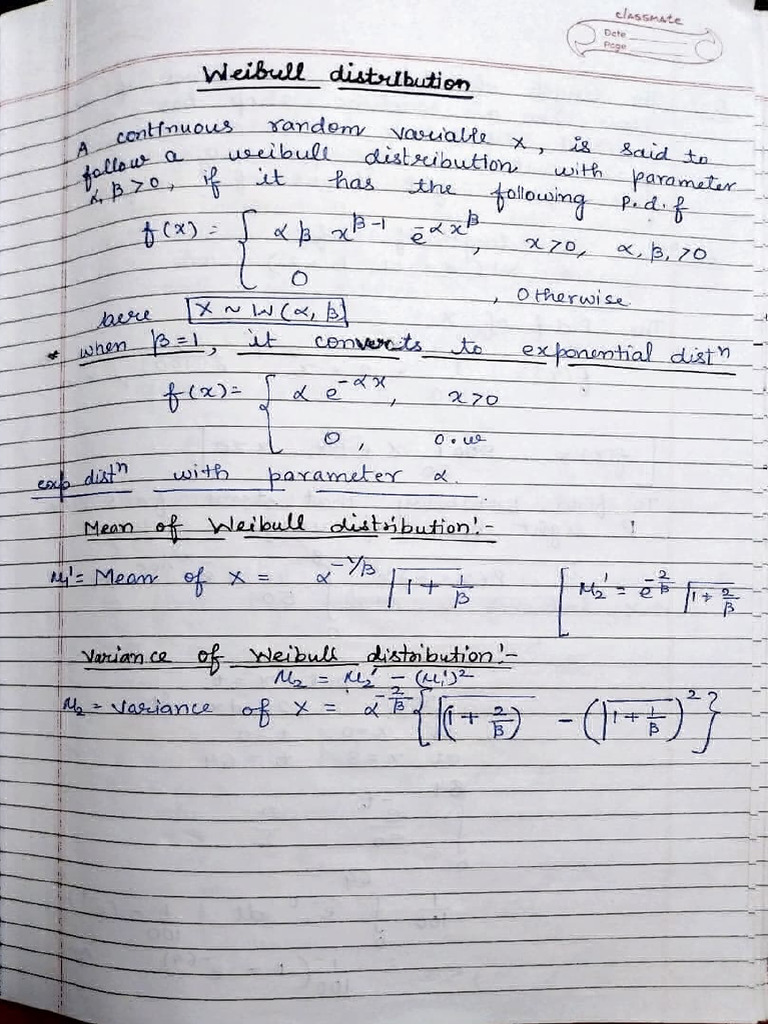 classmate
Date
Page
Weibull distribution
A continuous random variable x, is said to
follow a weibull distribution with parameter
α, β >0, if it has the following p.d.f
f(x) = { α β x^{β-1} e^{-α x^β}, x>0, α, β, >0
0 , Otherwise
here X ~ W(α, β)
* when β=1, it converts to exponential distⁿ
f(x)= { α e^{-αx}, x>0
0, o.w
exp distⁿ with parameter α.
Mean of Weibull distribution:-
μ₁' = Mean of X = α^{-1/β} Γ1+1/β [μ₂' = e^{-2/β} Γ1+2/β
Variance of Weibull distribution:-
μ₂ = μ₂' - (μ₁')²
μ₂ = variance of X = α^{-2/β} {Γ(1+2/β) - (Γ1+1/β)²}